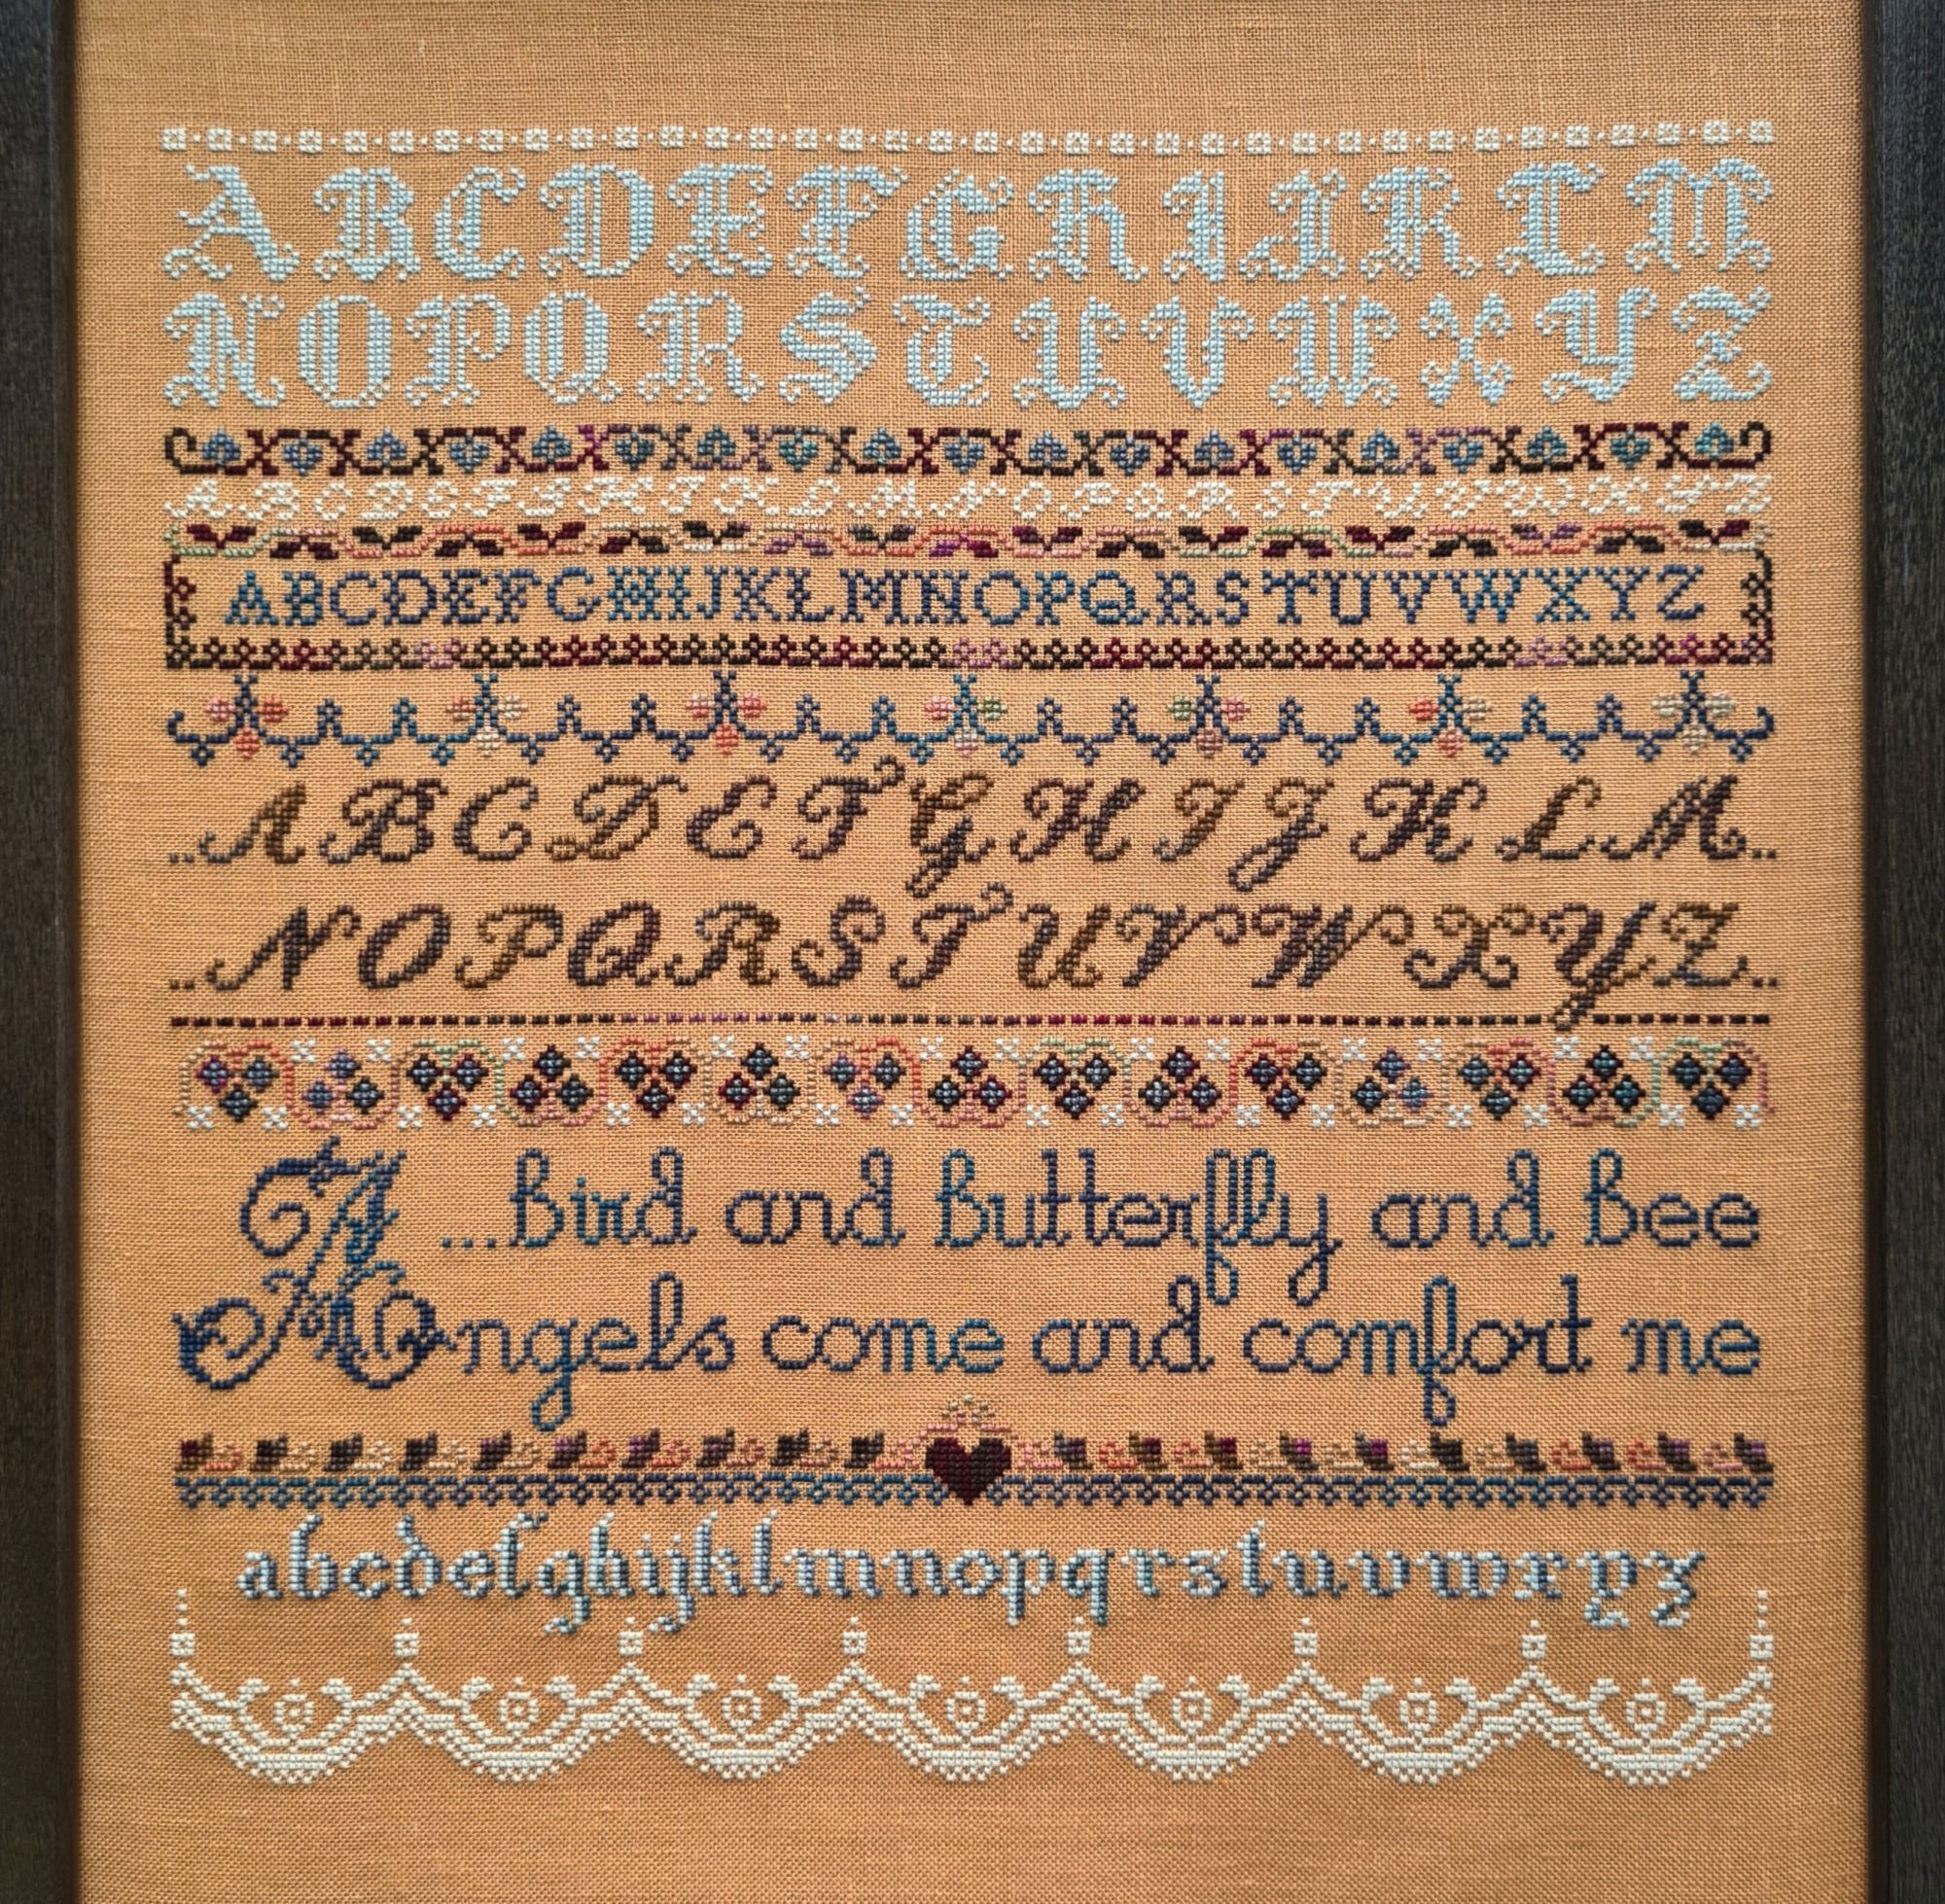 A B C D E F G H I J K L M
N O P Q R S T U V W X Y Z
A B C D E F G H I K L M N O P Q R S T U V W X Y Z
A B C D E F G H I J K L M N O P Q R S T U V W X Y Z
..A B C D E F G H I J K L M..
..N O P Q R S T U V W X Y Z..
...Bird and Butterfly and Bee
Angels come and comfort me
abcdefghijklmnopqrstuvwxyz